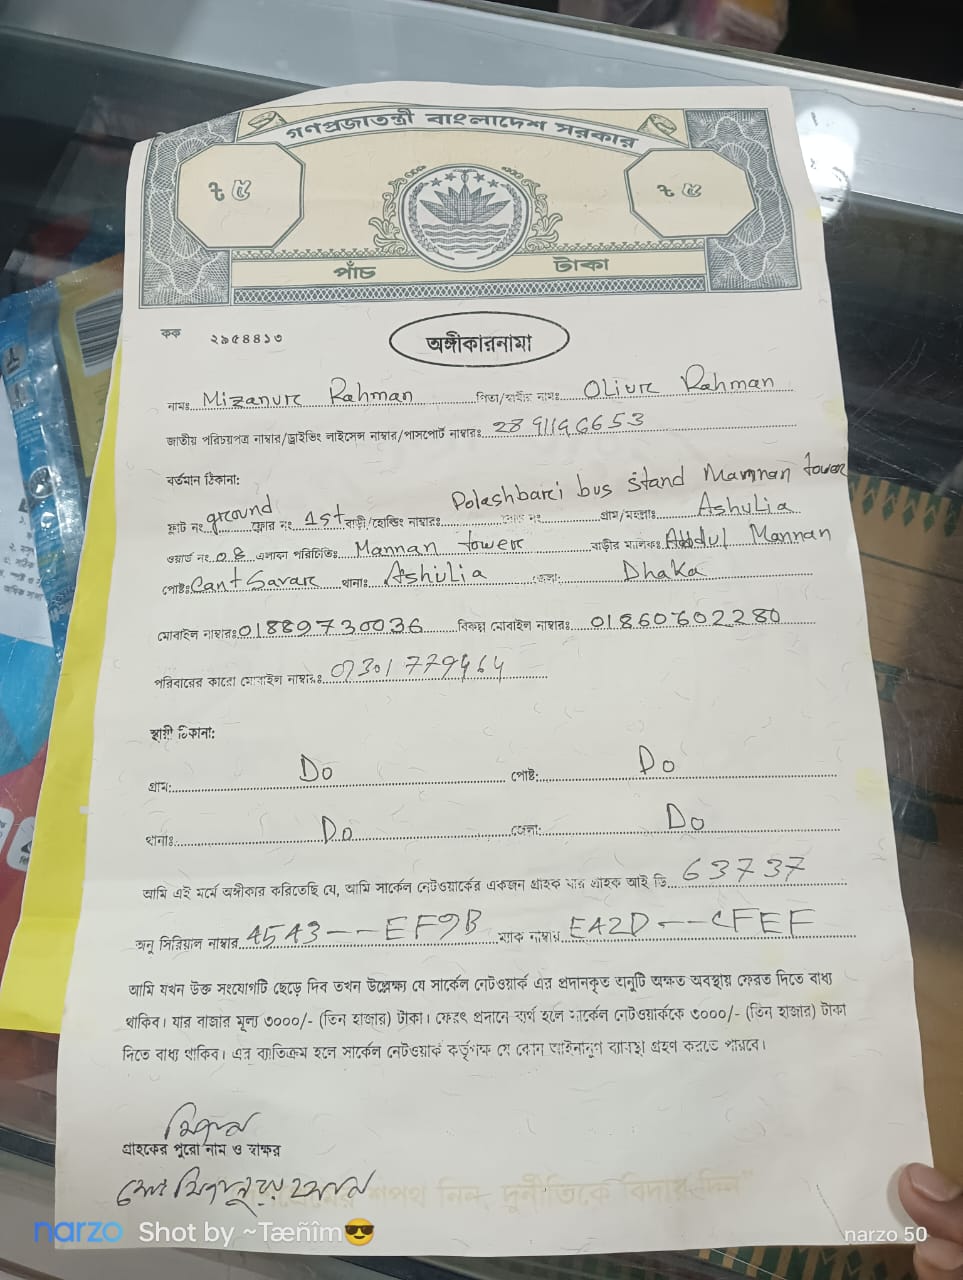 গণপ্রজাতন্ত্রী বাংলাদেশ সরকার
৳ ৫ ৳ ৫
পাঁচ টাকা
কক ২৯৫৪৪১৩
অঙ্গীকারনামা
নামঃ Mizanur Rahman পিতা/স্বামীর নামঃ Oliur Rahman
জাতীয় পরিচয়পত্র নাম্বার/ড্রাইভিং লাইসেন্স নাম্বার/পাসপোর্ট নাম্বারঃ
বর্তমান ঠিকানা:
Polashbari bus stand Mannan tower
ফ্লাট নং ground ফ্লোর নং 1st বাড়ী/হোল্ডিং নাম্বারঃ গ্রাম/মহল্লাঃ Ashulia
ওয়ার্ড নং 08 এলাকা পরিচিতিঃ Mannan tower বাড়ীর মালিকঃ Abdul Mannan
পোষ্টঃ Cant Savar থানাঃ Ashulia জেলা: Dhaka
মোবাইল নাম্বারঃ 01889730036 বিকল্প মোবাইল নাম্বারঃ 01860602280
পরিবারের কারো মোবাইল নাম্বারঃ
স্থায়ী ঠিকানা:
গ্রাম: Do পোষ্ট: Do
থানাঃ Do জেলা: Do
আমি এই মর্মে অঙ্গীকার করিতেছি যে, আমি সার্কেল নেটওয়ার্কের একজন গ্রাহক যার গ্রাহক আই ডি 63737
অনু সিরিয়াল নাম্বার 4543--EF9B ম্যাক নাম্বার EA2D--CFEF
আমি যখন উক্ত সংযোগটি ছেড়ে দিব তখন উল্লেক্ষ্য যে সার্কেল নেটওয়ার্ক এর প্রদানকৃত অনুটি অক্ষত অবস্থায় ফেরত দিতে বাধ্য
থাকিব। যার বাজার মূল্য ৩০০০/- (তিন হাজার) টাকা। ফেরৎ প্রদানে ব্যর্থ হলে সার্কেল নেটওয়ার্ককে ৩০০০/- (তিন হাজার) টাকা
দিতে বাধ্য থাকিব। এর ব্যতিক্রম হলে সার্কেল নেটওয়ার্ক কর্তৃপক্ষ যে কোন আইনানুগ ব্যবস্থা গ্রহণ করতে পারবে।
মিজান
গ্রাহকের পুরো নাম ও স্বাক্ষর
মোঃ মিজানুর রহমান
শপথ নিন, দুর্নীতিকে বিদায় দিন"
narzo Shot by ~Tæñîm😎 narzo 50